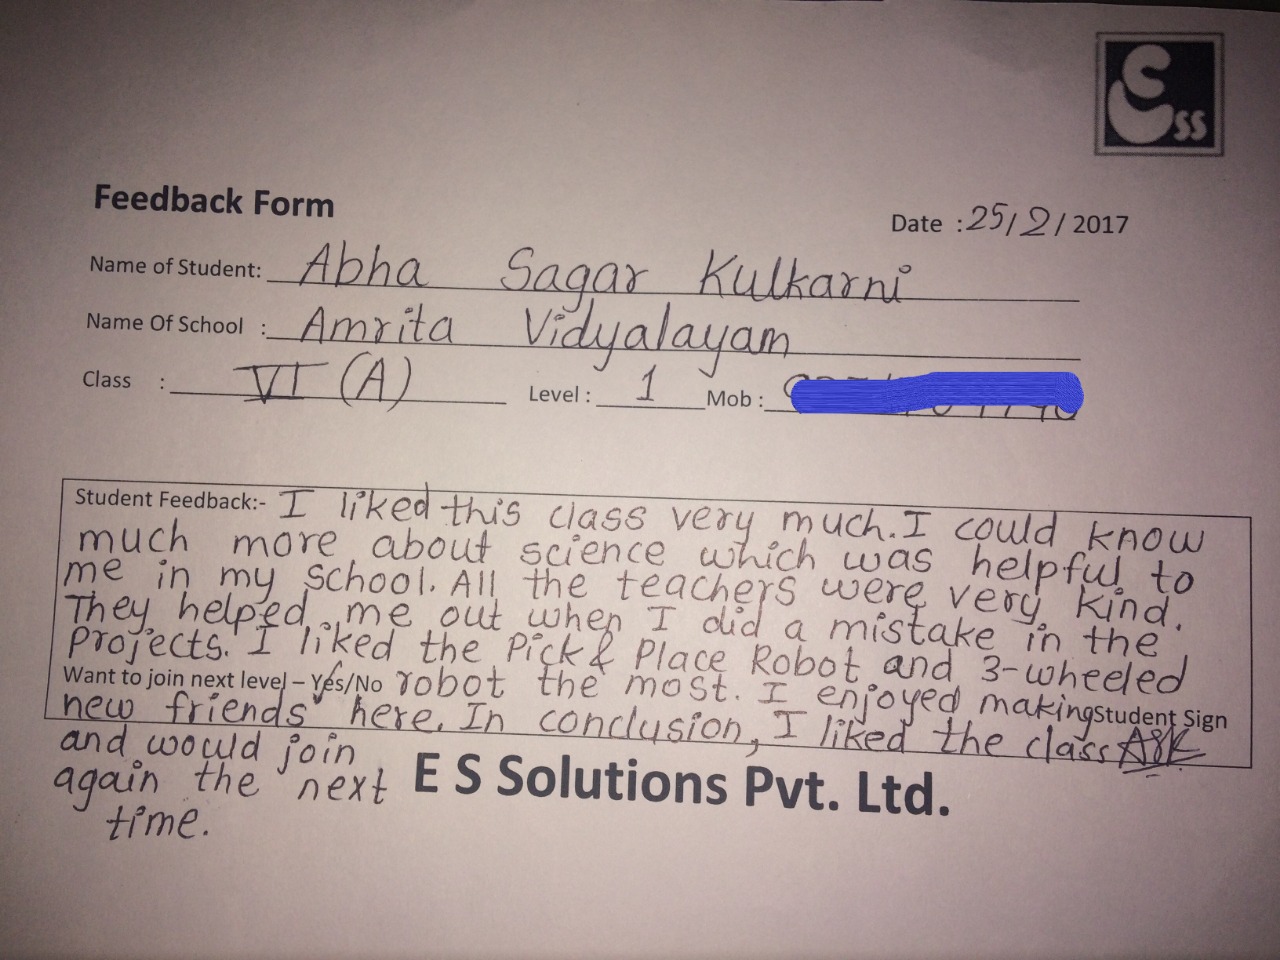 ESS
Feedback Form
Date : 25/2/2017
Name of Student: Abha Sagar Kulkarni
Name Of School : Amrita Vidyalayam
Class : VI (A) Level : 1 Mob :
Student Feedback:- I liked this class very much. I could know
much more about science which was helpful to
me in my school. All the teachers were very kind.
They helped me out when I did a mistake in the
projects. I liked the Pick & Place Robot and 3-wheeled
Want to join next level – Yes/No robot the most. I enjoyed making Student Sign
new friends here. In conclusion, I liked the class ASK
and would join
again the next
time.
E S Solutions Pvt. Ltd.